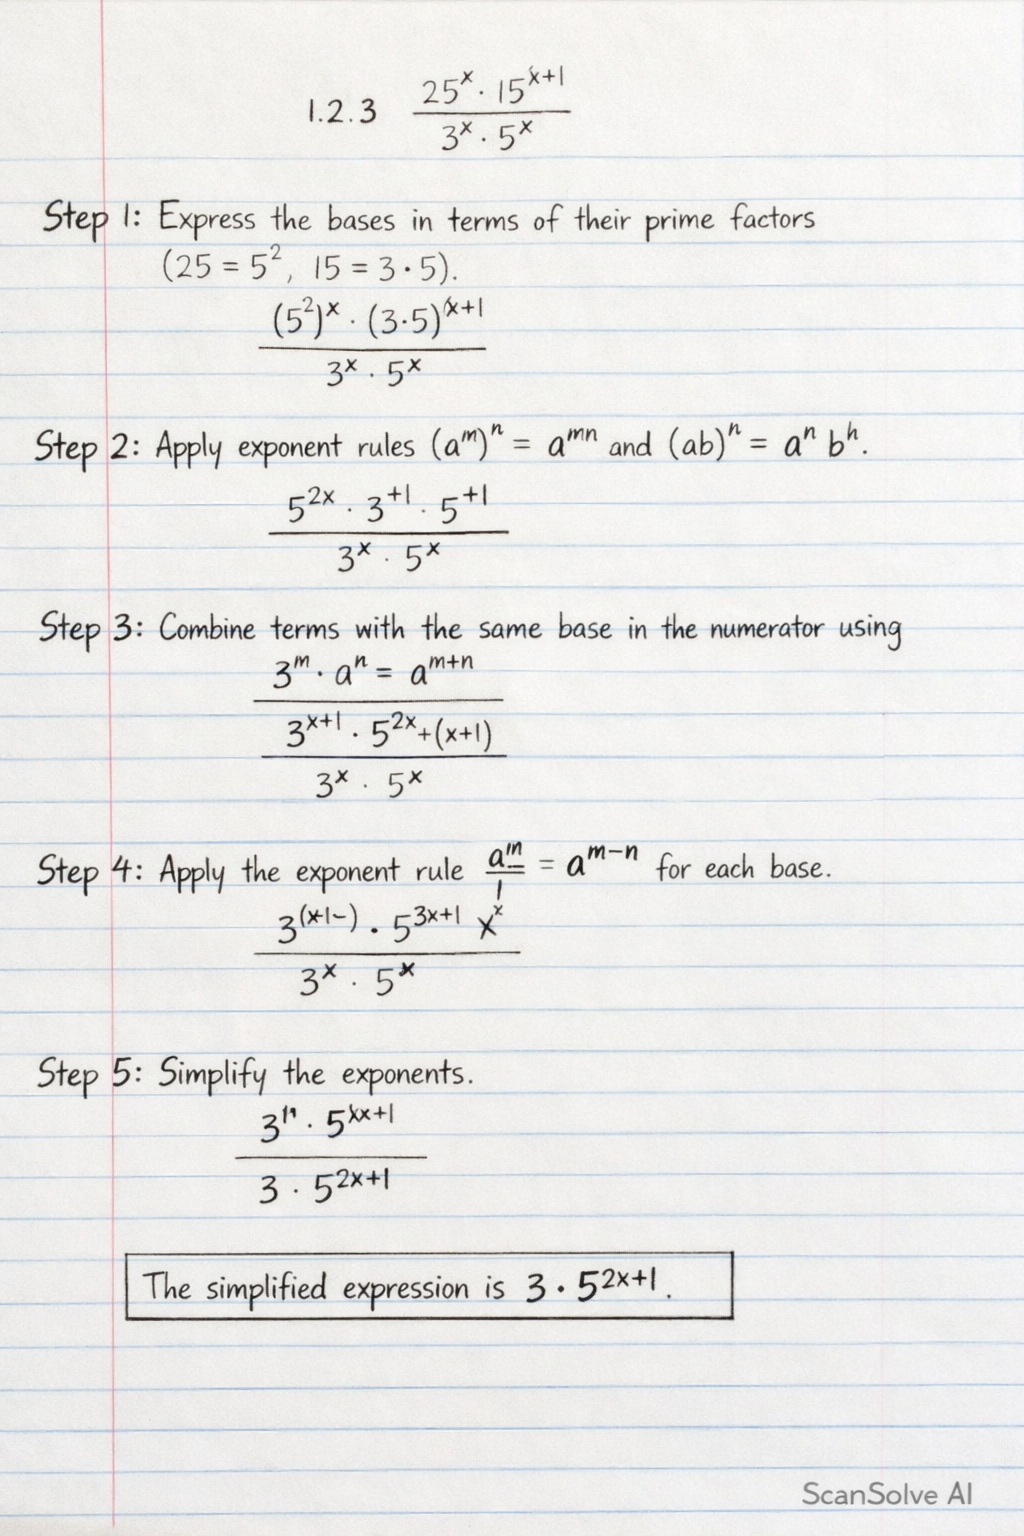 1.2.3 25^x · 15^(x+1)
3^x · 5^x
Step 1: Express the bases in terms of their prime factors
(25 = 5², 15 = 3 · 5).
(5²)^x · (3·5)^(x+1)
3^x · 5^x
Step 2: Apply exponent rules (a^m)^n = a^mn and (ab)^n = a^n b^n.
5^2x · 3^+1 · 5^+1
3^x · 5^x
Step 3: Combine terms with the same base in the numerator using
3^m · a^n = a^m+n
3^x+1 · 5^2x+(x+1)
3^x · 5^x
Step 4: Apply the exponent rule a^m/1 = a^m−n for each base.
3^(x+1−) · 5^3x+1 x^x
3^x · 5^x
Step 5: Simplify the exponents.
3 · 5^xx+1
3 · 5^2x+1
The simplified expression is 3 · 5^2x+1.
ScanSolve AI